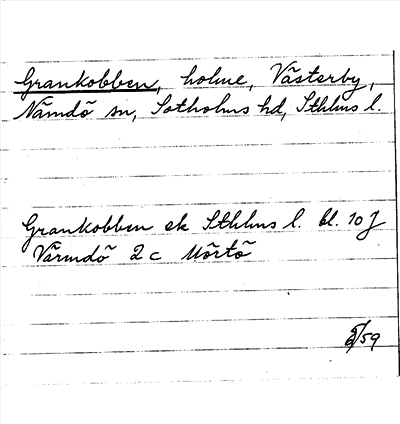 Grankobben, holme, Västerby,
Nämdö sn, Sotholms hd, Sthlms l.
Grankobben ek Sthlms l. bl. 10 J
Värmdö 2 c Mörtö
/59